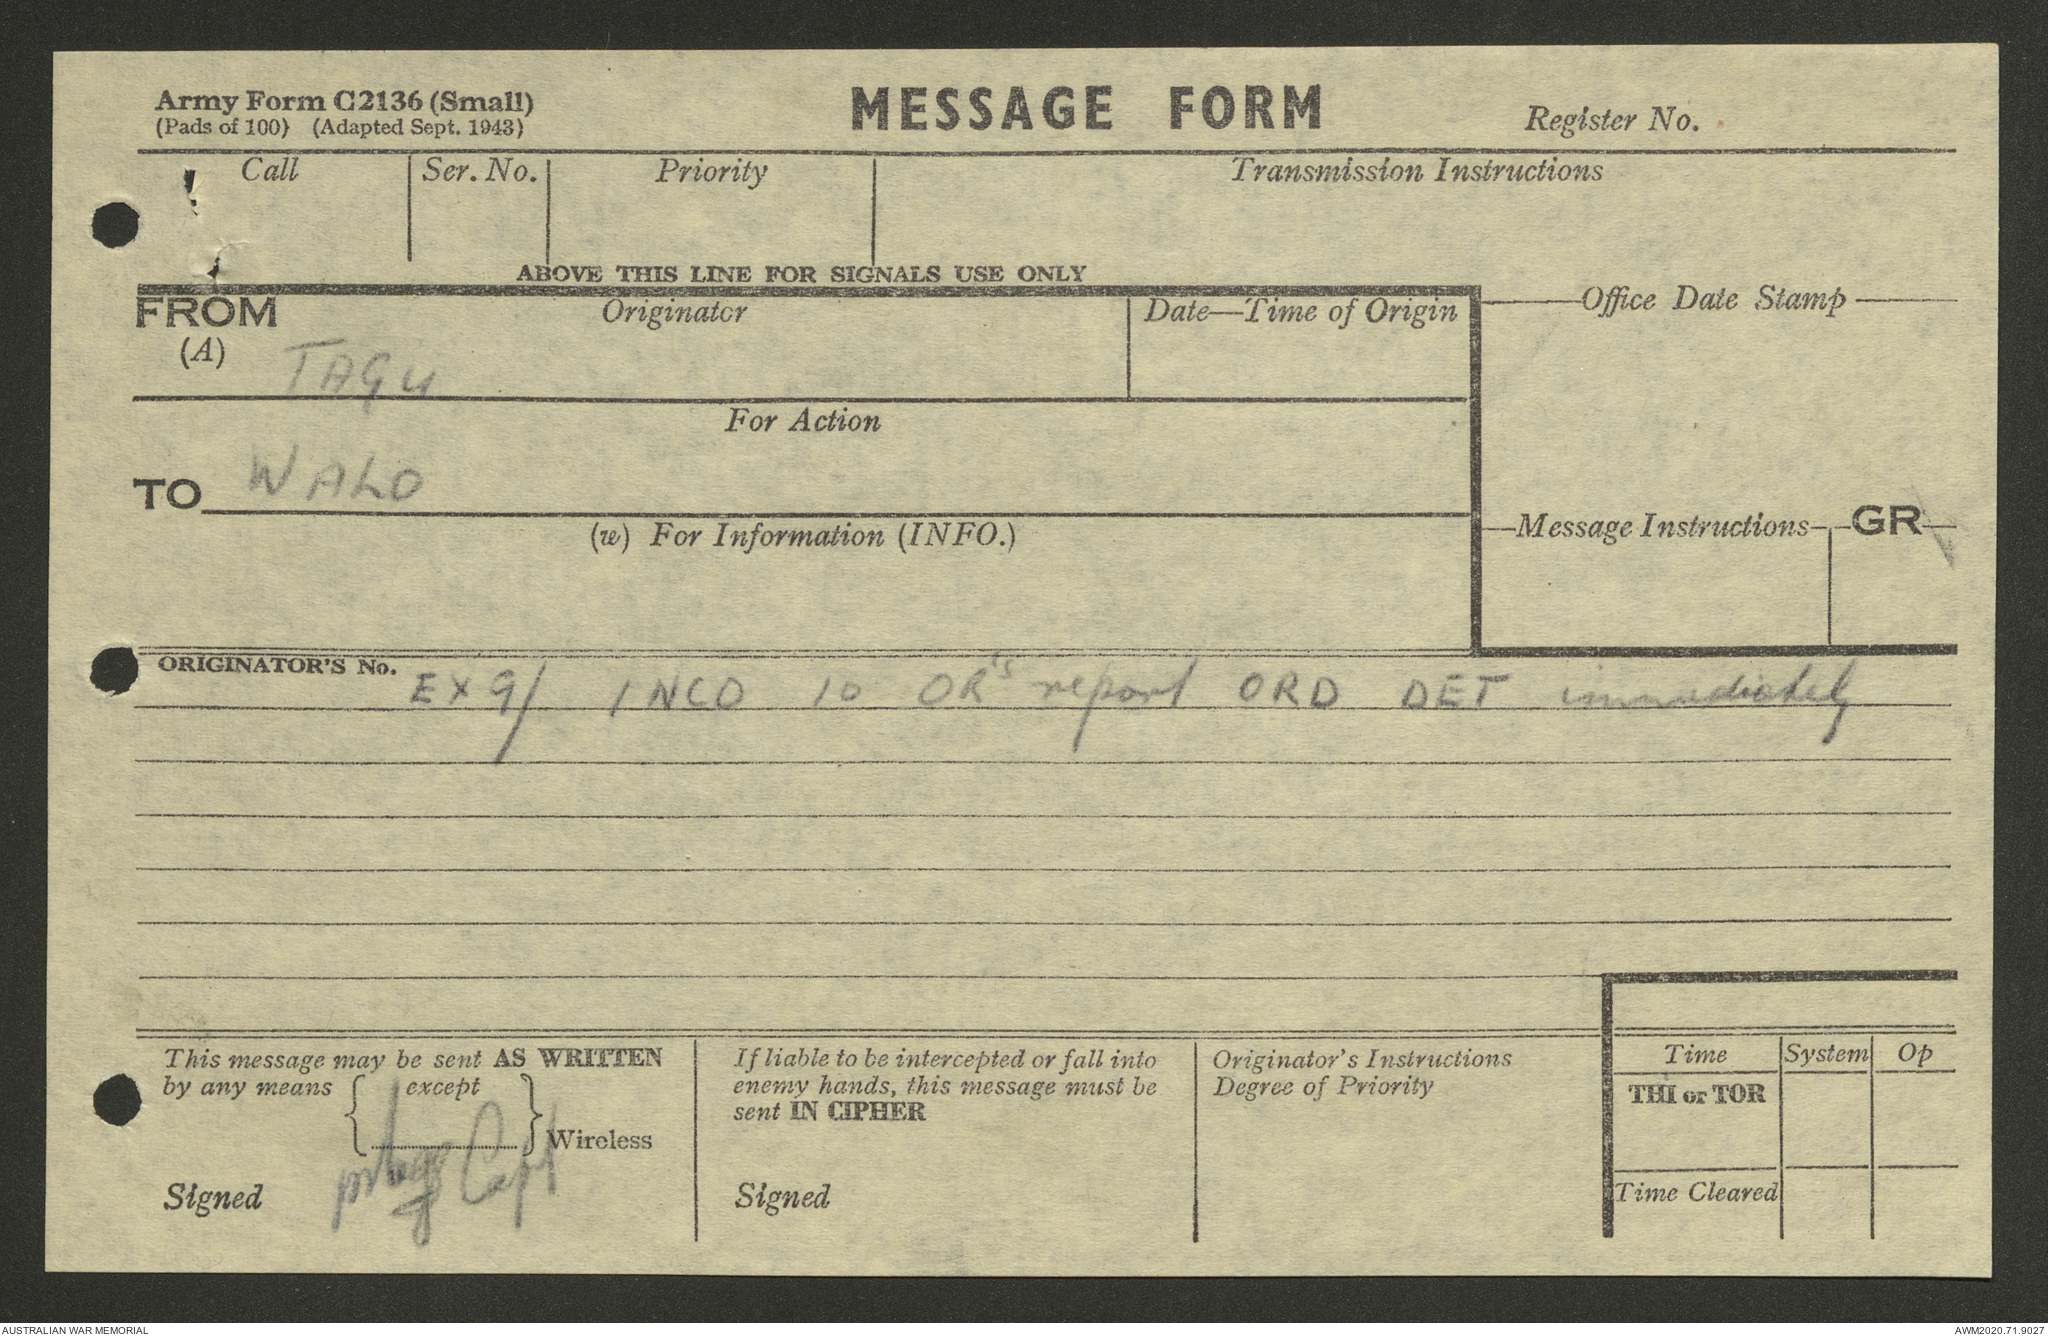 Army Form C2136 (Small)
(Pads of 100) (Adapted Sept. 1943)
MESSAGE FORM
Register No.
Call
Ser. No.
Priority
Transmission Instructions
ABOVE THIS LINE FOR SIGNALS USE ONLY
FROM
(A)
Originator
Date—Time of Origin
Office Date Stamp
TAGU
For Action
TO
WALO
(w) For Information (INFO.)
Message Instructions
GR
ORIGINATOR'S No.
EX9/ 1NCO 10 OR's report ORD DET immediately
This message may be sent AS WRITTEN
by any means { except
} Wireless
Signed
Capt
If liable to be intercepted or fall into
enemy hands, this message must be
sent IN CIPHER
Signed
Originator's Instructions
Degree of Priority
Time
System
Op
THI or TOR
Time Cleared
AUSTRALIAN WAR MEMORIAL
AWM2020.71.9027